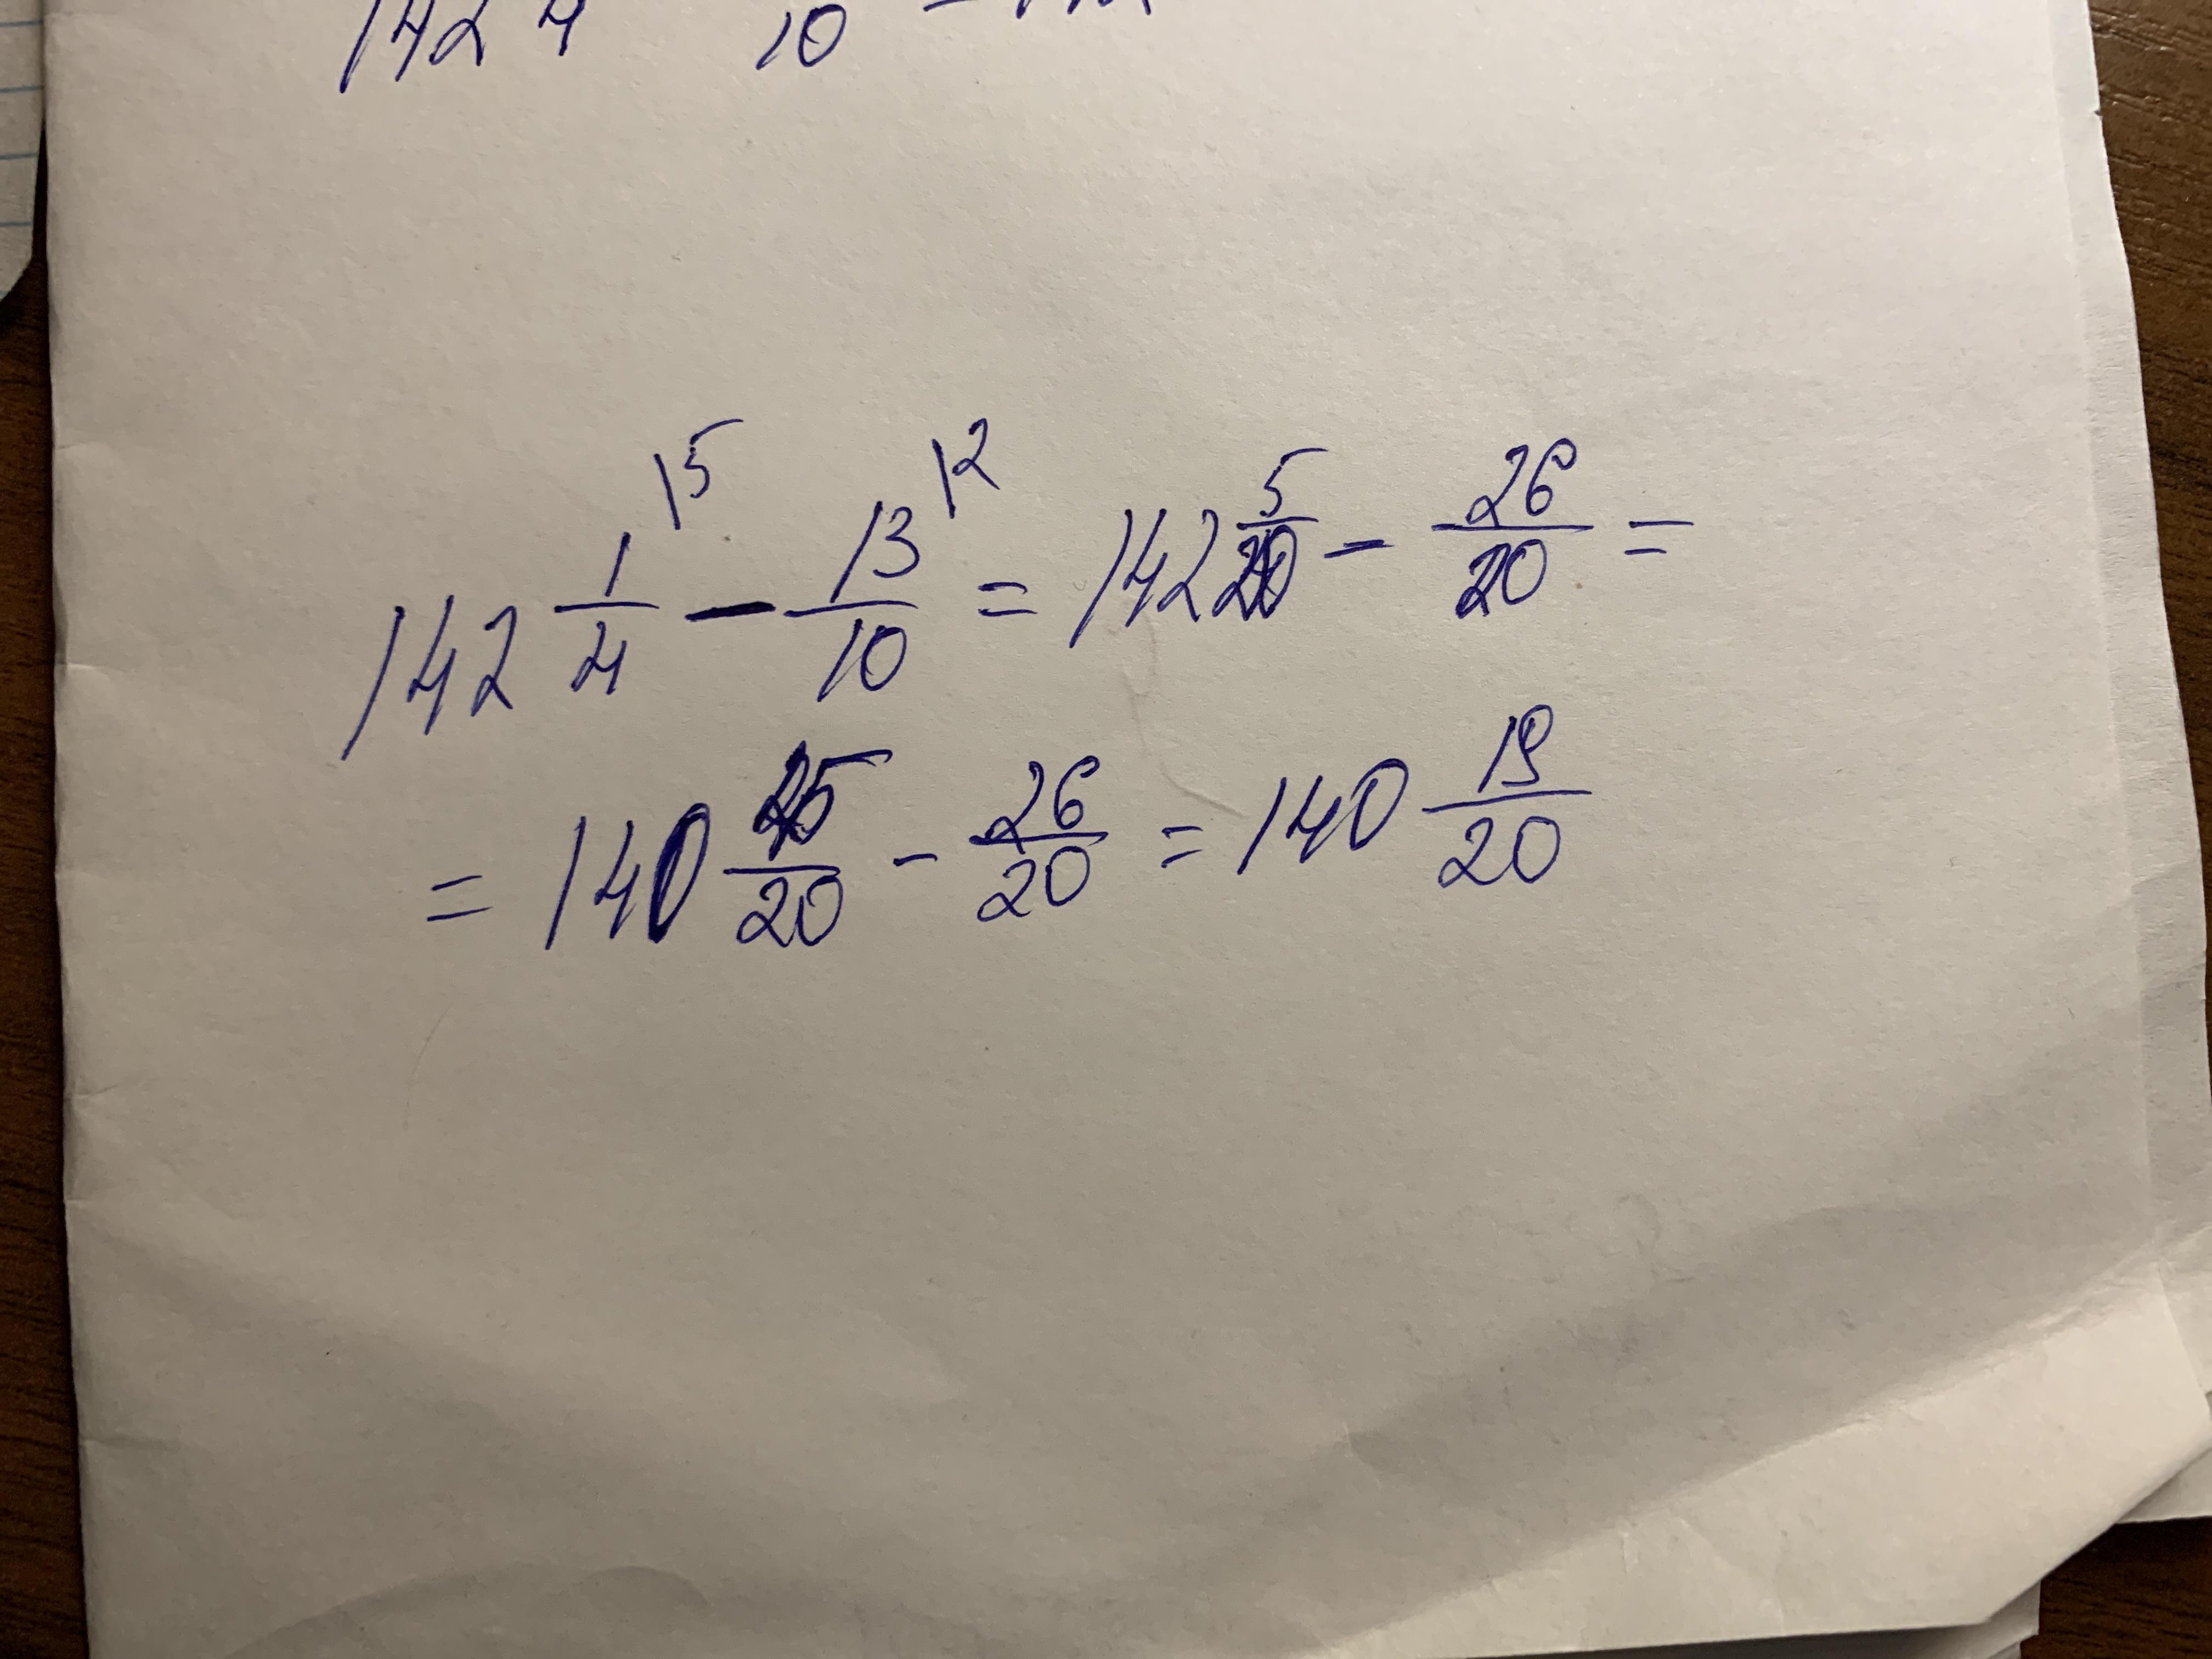 142 4 10
142 1/4 |5 - 13/10 |2 = 142 5/20 - 26/20 =
= 140 45/20 - 26/20 = 140 19/20